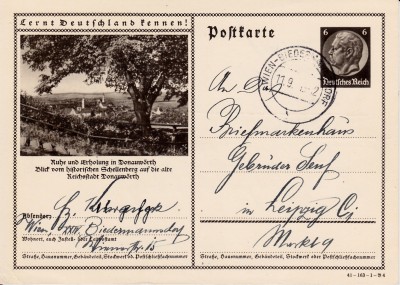 Lernt Deutschland kennen!
Postkarte
6 6
Deutsches Reich
WIEN-BIEDER
11.9.
DORF
An das
Briefmarkenhaus
Gebrüder Senf
in Leipzig C1
Markt 9
Ruhe und Erholung in Donauwörth
Blick vom historischen Schellenberg auf die alte
Reichsstadt Donauwörth
Absender:
Wien, XXIV. Biedermannsdorf
Wohnort, auch Zustell- oder Leitpostamt
15
Straße, Hausnummer, Gebäudeteil, Stockwerk od. Postschließfachnummer
Straße, Hausnummer, Gebäudeteil, Stockwerk oder Postschließfachnummer
41-163-1-B6